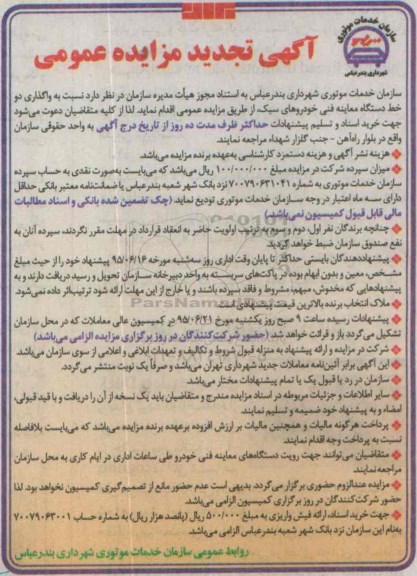 سازمان خدمات موتوری
شهرداری بندرعباس
آگهی تجدید مزایده عمومی
سازمان خدمات موتوری شهرداری بندرعباس به استناد مجوز هیأت مدیره سازمان در نظر دارد نسبت به واگذاری دو
خط دستگاه معاینه فنی خودروهای سبک، از طریق مزایده عمومی اقدام نماید. لذا از کلیه متقاضیان دعوت می‌شود
جهت خرید اسناد و تسلیم پیشنهادات حداکثر ظرف مدت ده روز از تاریخ درج آگهی به واحد حقوقی سازمان
واقع در بلوار راه‌آهن - جنب گلزار شهداء مراجعه نمایند.
هزینه نشر آگهی و هزینه دستمزد کارشناسی به‌عهده برنده مزایده می‌باشد.
میزان سپرده شرکت در مزایده مبلغ ۱۰۰/۰۰۰/۰۰۰ ریال می‌باشد که می‌بایست به‌صورت نقدی به حساب سپرده
سازمان خدمات موتوری به شماره ۷۰۰۷۹۰۶۳۱۰۴۱ نزد بانک شهر شعبه بندرعباس یا ضمانت‌نامه معتبر بانکی حداقل
دارای سه ماه اعتبار در وجه سازمان خدمات موتوری تودیع نماید (چک تضمین شده بانکی و اسناد مطالبات
مالی قابل قبول کمیسیون نمی‌باشد)
چنانچه برندگان نفر اول، دوم و سوم به ترتیب اولویت حاضر به انعقاد قرارداد در مهلت مقرر نگردند، سپرده آنان به
نفع صندوق سازمان ضبط خواهد گردید.
پیشنهاددهندگان بایستی حداکثر تا پایان وقت اداری روز سه‌شنبه مورخه ۹۵/۰۶/۱۶ پیشنهاد خود را از حیث مبلغ
مشخص، معین و بدون ابهام بوده در پاکت‌های سربسته به واحد دبیرخانه سازمان تحویل و رسید دریافت دارند و به
پیشنهادهایی که مخدوش، مبهم، مشروط و فاقد سپرده باشند و یا خارج از این مهلت ارائه شود ترتیب‌اثر داده نمی‌شود.
ملاک انتخاب برنده بالاترین قیمت پیشنهادی است.
پیشنهادات رسیده ساعت ۹ صبح روز یکشنبه مورخ ۹۵/۰۶/۲۱ در کمیسیون عالی معاملات که در محل سازمان
تشکیل می‌گردد باز و قرائت خواهد شد. (حضور شرکت‌کنندگان در روز برگزاری مزایده الزامی می‌باشد)
شرکت در مزایده و ارائه پیشنهاد به منزله قبول شروط و تکالیف و تعهدات ابلاغی و اعلامی از سوی سازمان می‌باشد.
این آگهی برابر آئین‌نامه معاملات جدید شهرداری تهران می‌باشد و صرفاً یک نوبت منتشر می‌گردد.
سازمان در رد یا قبول یک یا تمام پیشنهادات مختار می‌باشد.
سایر اطلاعات و جزئیات مربوطه در اسناد مزایده مندرج و متقاضیان باید یک نسخه از آن را دریافت و با قید قبولی،
امضاء و به پیشنهاد خود ضمیمه و تسلیم نمایند.
پرداخت هرگونه مالیات و همچنین مالیات بر ارزش افزوده برعهده برنده مزایده می‌باشد که می‌بایست بلافاصله
نسبت به پرداخت وجه اقدام نمایند.
متقاضیان می‌توانند جهت رویت دستگاه‌های معاینه فنی خودرو طی ساعات اداری در ایام کاری به محل سازمان
مراجعه نمایند.
مزایده عندالزوم حضوری برگزار می‌گردد. بدیهی است عدم حضور مانع از تصمیم‌گیری کمیسیون نخواهد بود. لذا
حضور شرکت‌کنندگان در روز برگزاری کمیسیون الزامی می‌باشد.
جهت خرید اسناد، ارائه فیش واریزی به مبلغ ۵۰۰/۰۰۰ ریال (پانصد هزار ریال) به شماره حساب ۷۰۰۷۹۰۶۳۰۰۱
به‌نام این سازمان نزد بانک شهر شعبه بندرعباس الزامی می‌باشد.
روابط عمومی سازمان خدمات موتوری شهرداری بندرعباس